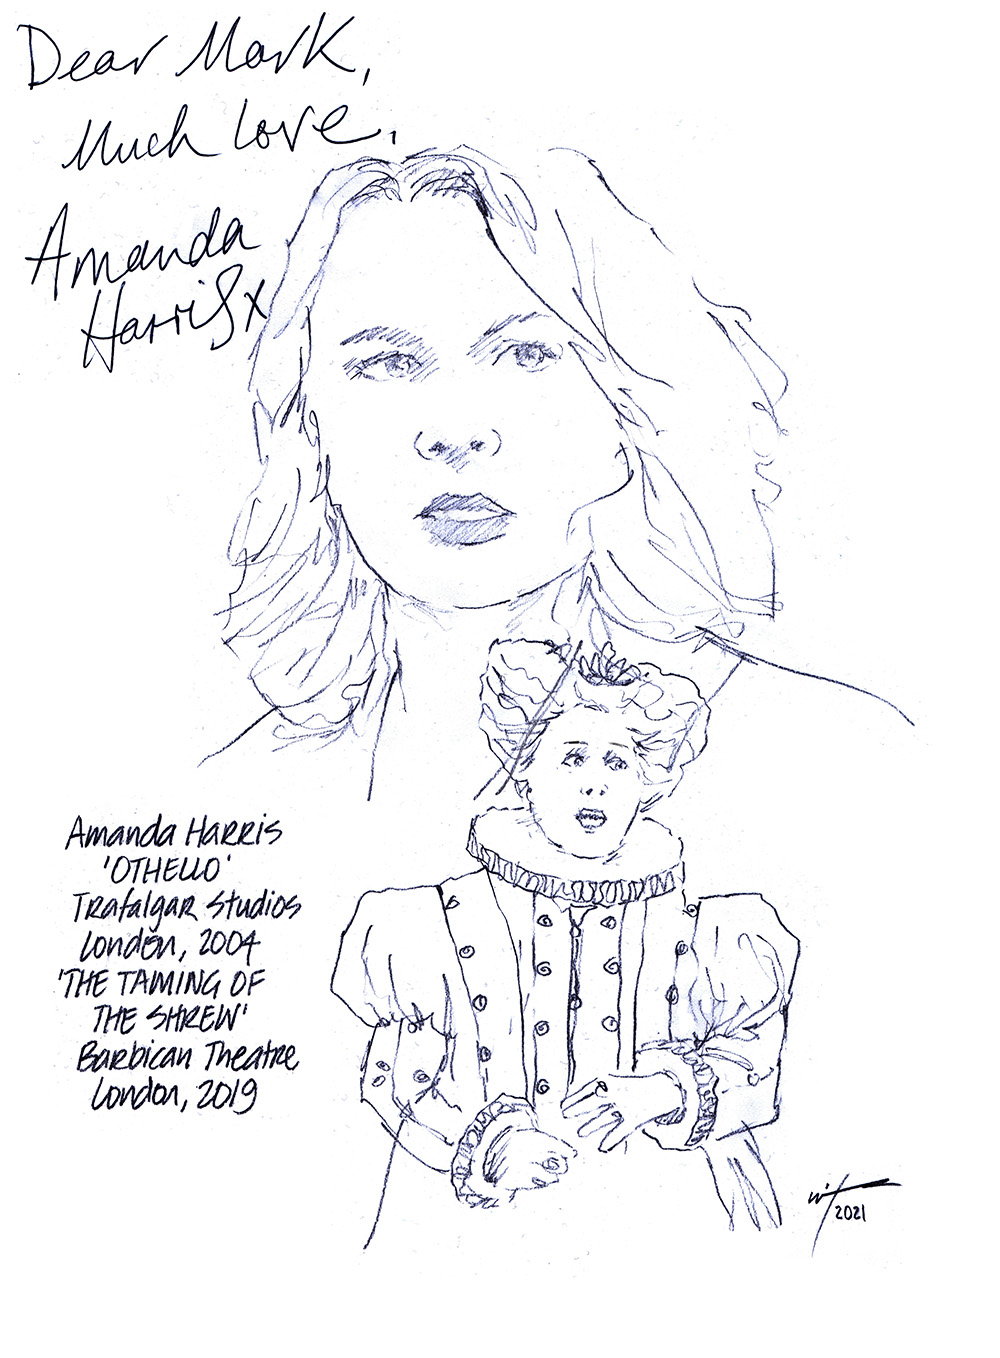 Dear Mark,
Much Love,
Amanda
Harris x
Amanda Harris
'OTHELLO'
Trafalgar Studios
London, 2004
'THE TAMING OF
THE SHREW'
Barbican Theatre
London, 2019
2021